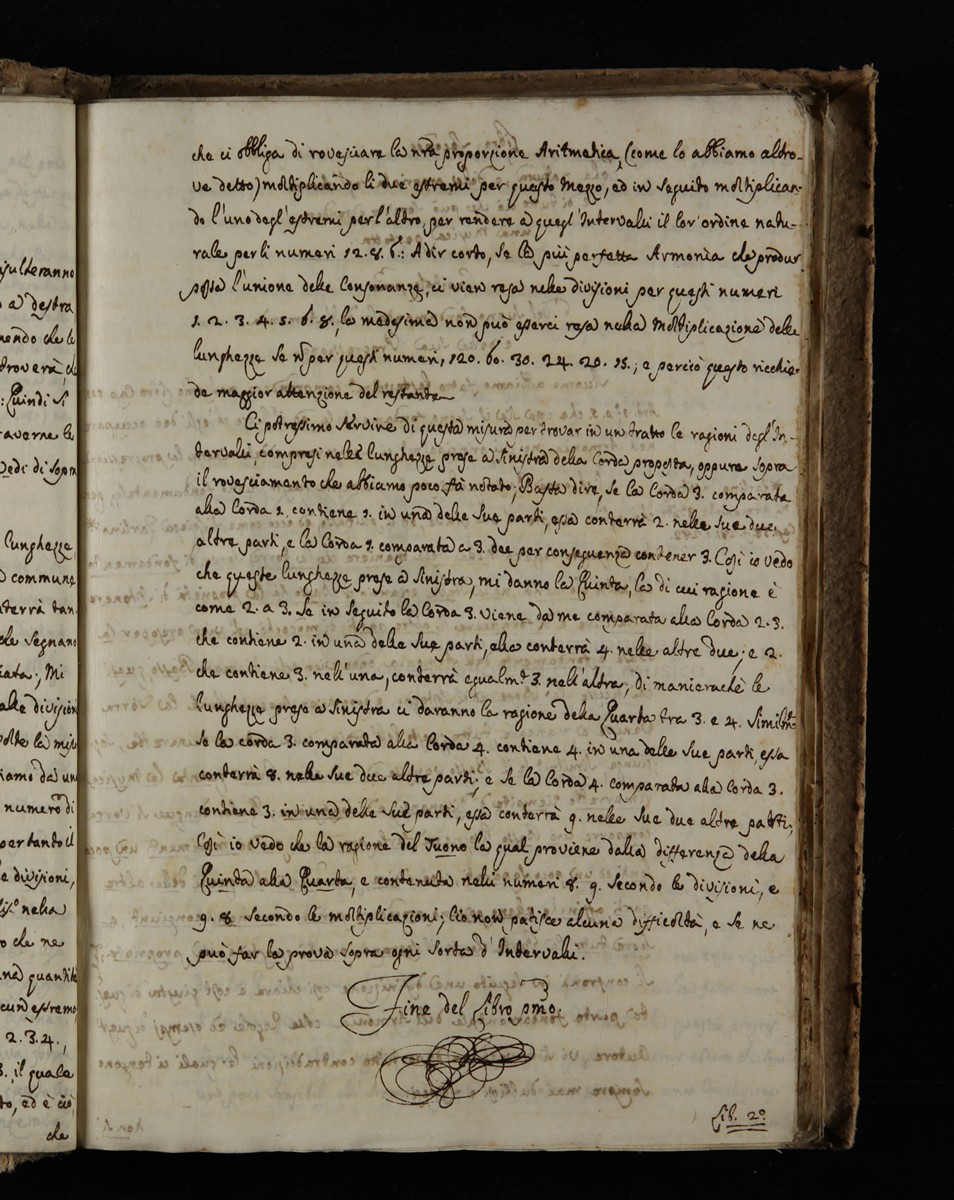 che ci obbliga di rovesciare la nra proporzione Aritmetica, (come lo abbiamo altro-
ve detto) moltiplicando li due estremi per questo mezzo, ed in seguito moltiplican-
do l'uno degl'estremi per l'altro, per rendere a quegl'Intervalli il lor'ordine natu-
rale per li numeri 12. 8. 6.: A dir corto, se la più perfetta Armonia che produr
possa l'unione delle Consonanze, ci vien resa nelle divisioni per questi numeri
1. 2. 3. 4. 5. 6. 8., la medesima non può esserci resa nella Moltiplicazione delle
lunghezze se ñ per questi numeri, 120. 60. 30. 24. 20. 15.; e perciò questo richie-
de maggior attenzione del restante
Ci potressimo servire di questa misura per trovar in un tratto le ragioni degl'In-
tervalli, compresi nelle lunghezze prese a sinistra della Corda proposta, oppure sopra
il rovesciamento che abbiamo poco fà notato; Basta dire, se la Corda 3. comparata
alla Corda 1. contiene 1. in una delle sue parti, essa conterrà 2. nelle sue due
altre parti, e la Corda 1. comparata a 3. dee per conseguenza contener 3. Così io vedo
che queste lunghezze prese a sinistra, mi danno la Quinta, la di cui ragione è
come 2. a 3. Se in seguito la Corda 3. viene da me comparata alla Corda 2. 3.
che contiene 2. in una delle sue parti, ella conterrà 4. nelle altre due; e 2.
che contiene 3. nell'una, conterrà egualm.te 3. nell'altra; di manierachè le
lunghezze prese a sinistra ci daranno la ragione della Quarta tra 3. e 4. Similm.te
se la corda 3. comparata alla Corda 4. contiene 4. in una delle sue parti essa
conterrà 8. nelle sue due altre parti; e se la Corda 4. comparata alla Corda 3.
contiene 3. in una delle sue parti, essa conterrà 9. nelle sue due altre parti;
Così io vedo che la ragione del Tuono la qual proviene dalla differenza della
Quinta alla Quarta, e contenuta nelli numeri 8. 9. secondo le divisioni, e
9. 8 secondo le moltiplicazioni; Ciò non patisce alcuna difficoltà, e se ne
può far la prova sopra ogni sorta d'Intervalli.
Fine del Libro pmo.
Lib. 2o
isulteranno
a destra
nendo che le
troverà, ch
: Quindi si
averne la
vedi di sopra
lunghezze
commune
terrà tan
che segnano
iata; Mi
alle division
volte la mis
iamo da un
numero di
pertanto il
e divisioni,
nella
o che ne
na quantit
cun estremo
2. 3. 4.,
3. il quale
to, ed è ciò
che